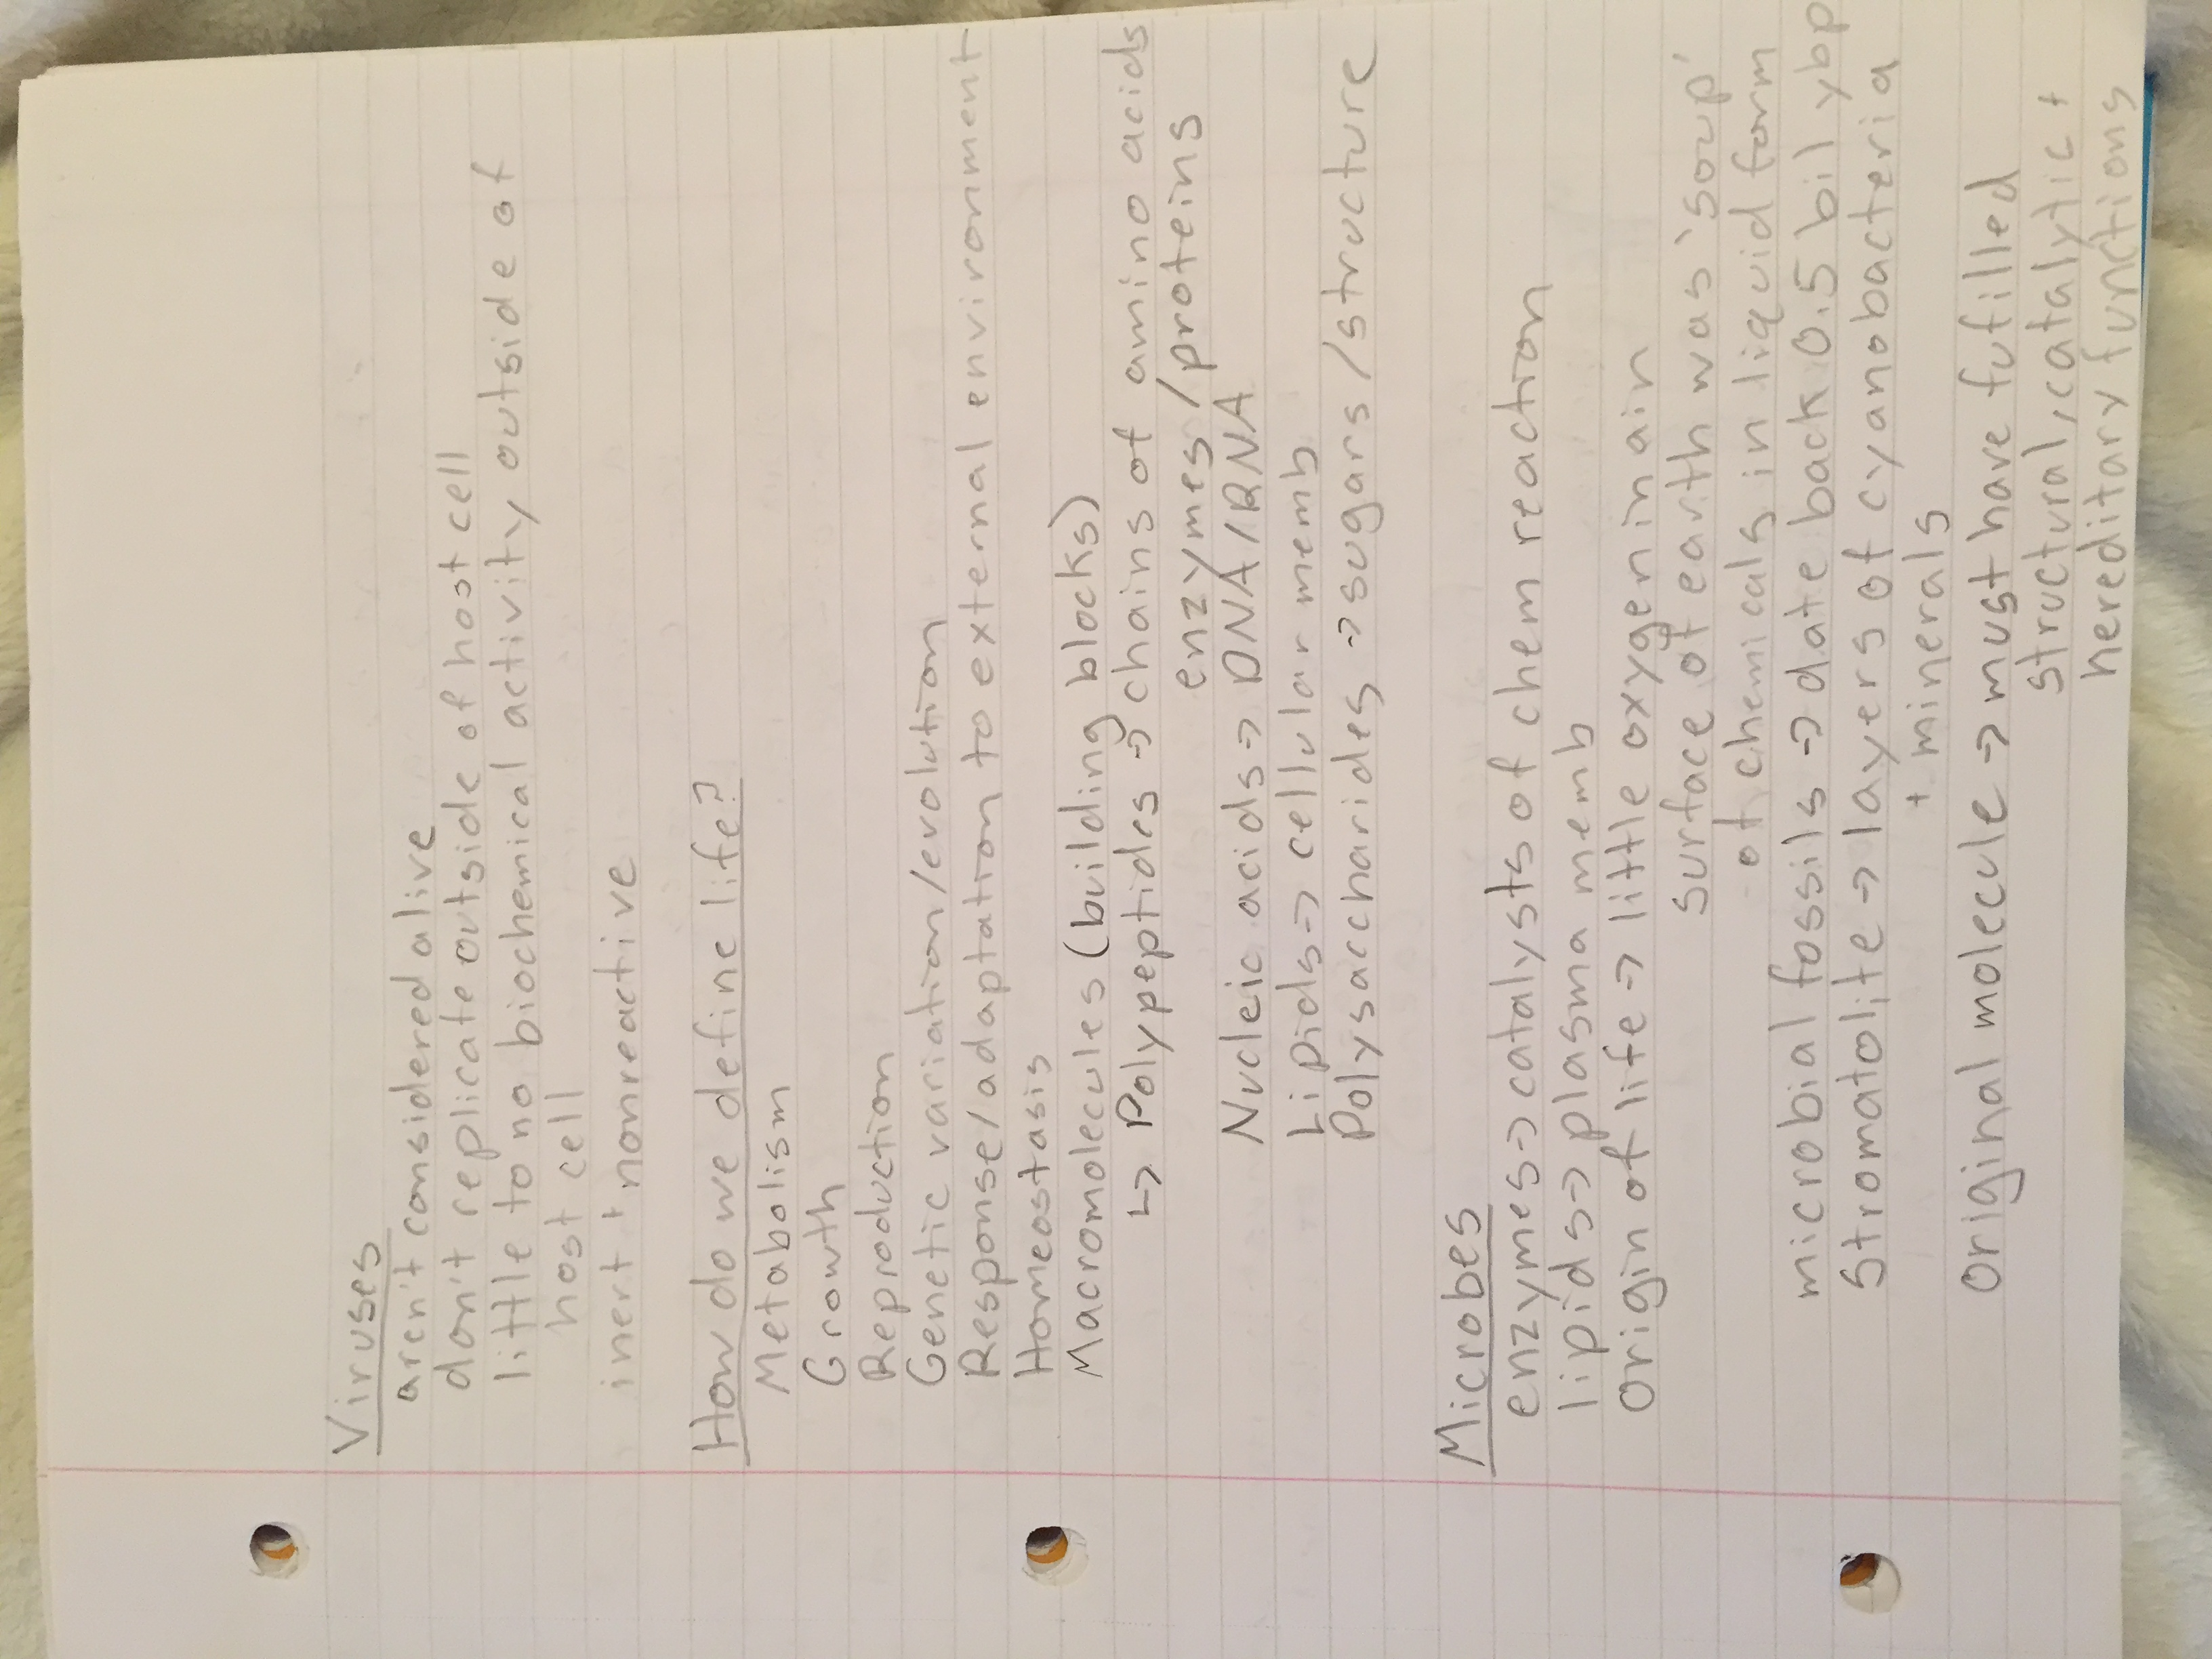 Viruses
aren't considered alive
don't replicate outside of host cell
little to no biochemical activity outside of
host cell
inert + nonreactive
How do we define life?
Metabolism
Growth
Reproduction
Genetic variation/evolution
Response/adaptation to external environment
Homeostasis
Macromolecules (building blocks)
↳ Polypeptides → chains of amino acids
enzymes/proteins
Nucleic acids → DNA/RNA
Lipids → cellular memb
Polysaccharides → sugars/structure
Microbes
enzymes → catalysts of chem reaction
lipids → plasma memb
Origin of life → little oxygen in air
surface of earth was 'soup'
of chemicals in liquid form
microbial fossils → date back 0.5 bil ybp
Stromatolite → layers of cyanobacteria
+ minerals
Original molecule → must have fufilled
structural, catalytic +
hereditary functions